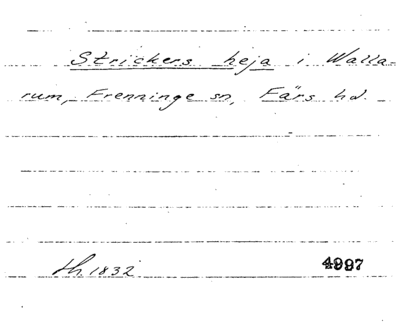 Strickers heja i Walla-
rum, Frenninge sn, Färs hd.
th 1832
4997